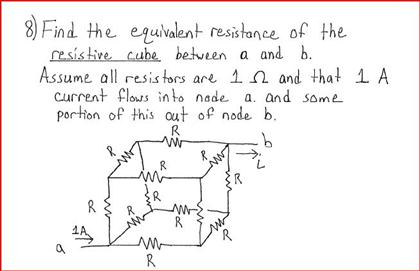 8) Find the equivalent resistance of the
resistive cube between a and b.
Assume all resistors are 1 Ω and that 1 A
current flows into node a. and some
portion of this out of node b.
R
b
R
R
R
i
R
R
R
R
R
1A
R
a
R